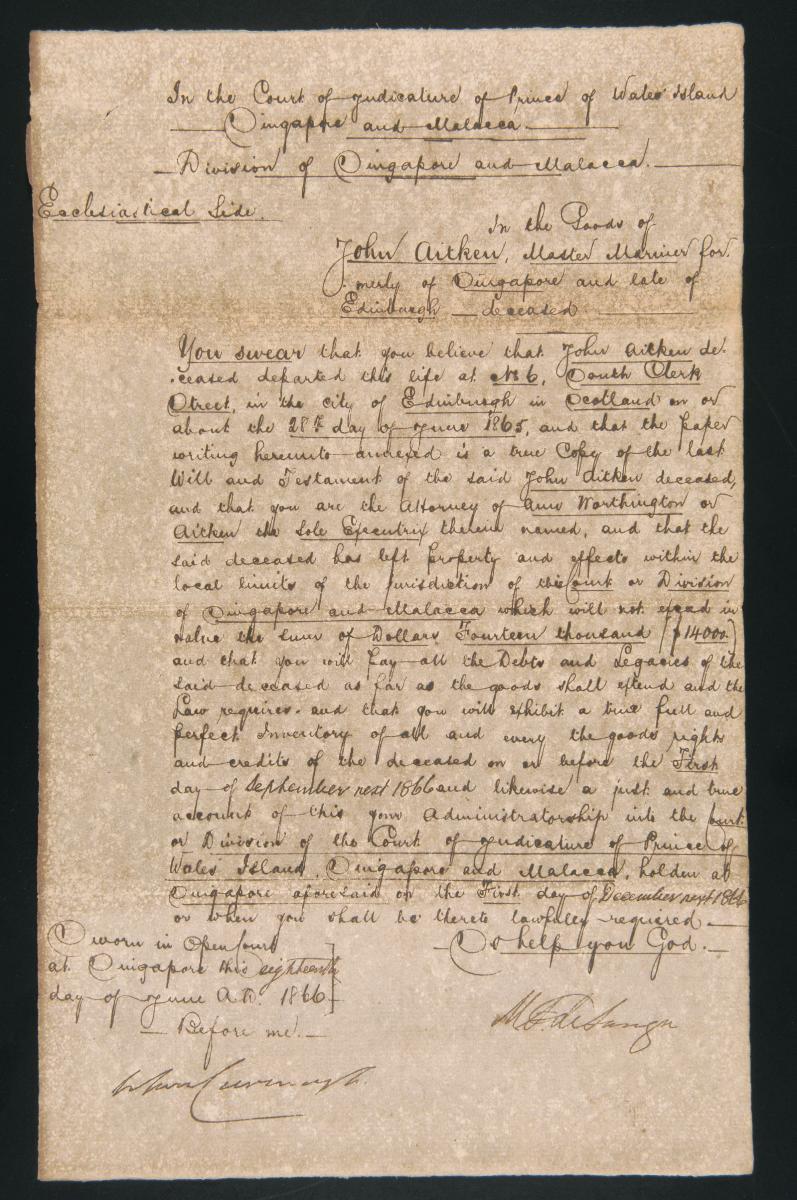 In the Court of Judicature of Prince of Wales Island
Singapore and Malacca
Division of Singapore and Malacca.
Ecclesiastical Side.
In the Goods of
John Aitken, Master Mariner for
merly of Singapore and late of
Edinburgh deceased
You swear that you believe that John Aitken de-
ceased departed this life at No 6, South Clerk
Street, in the city of Edinburgh in Scotland on or
about the 28th day of June 1865, and that the paper
writing hereunto annexed is a true Copy of the last
Will and Testament of the said John Aitken deceased,
and that you are the Attorney of Ann Worthington or
Aitken the Sole Executrix therein named, and that the
said deceased has left property and effects within the
local limits of the jurisdiction of this Court or Division
of Singapore and Malacca which will not exceed in
value the sum of Dollars Fourteen thousand ($14000)
and that you will pay all the Debts and Legacies of the
said deceased as far as the goods shall extend and the
Law requires. and that you will exhibit a true full and
perfect Inventory of all and every the goods rights
and credits of the deceased on or before the First
day of September next 1866 and likewise a just and true
account of this your Administratorship into the Court
or Division of the Court of Judicature of Prince of
Wales Island, Singapore and Malacca, holden at
Singapore aforesaid on the First day of December next 1866
or when you shall be thereto lawfully required
So help you God.
Sworn in Open Court
at Singapore this eighteenth
day of June A.D. 1866
Before me.
M. F. de
Cavenagh